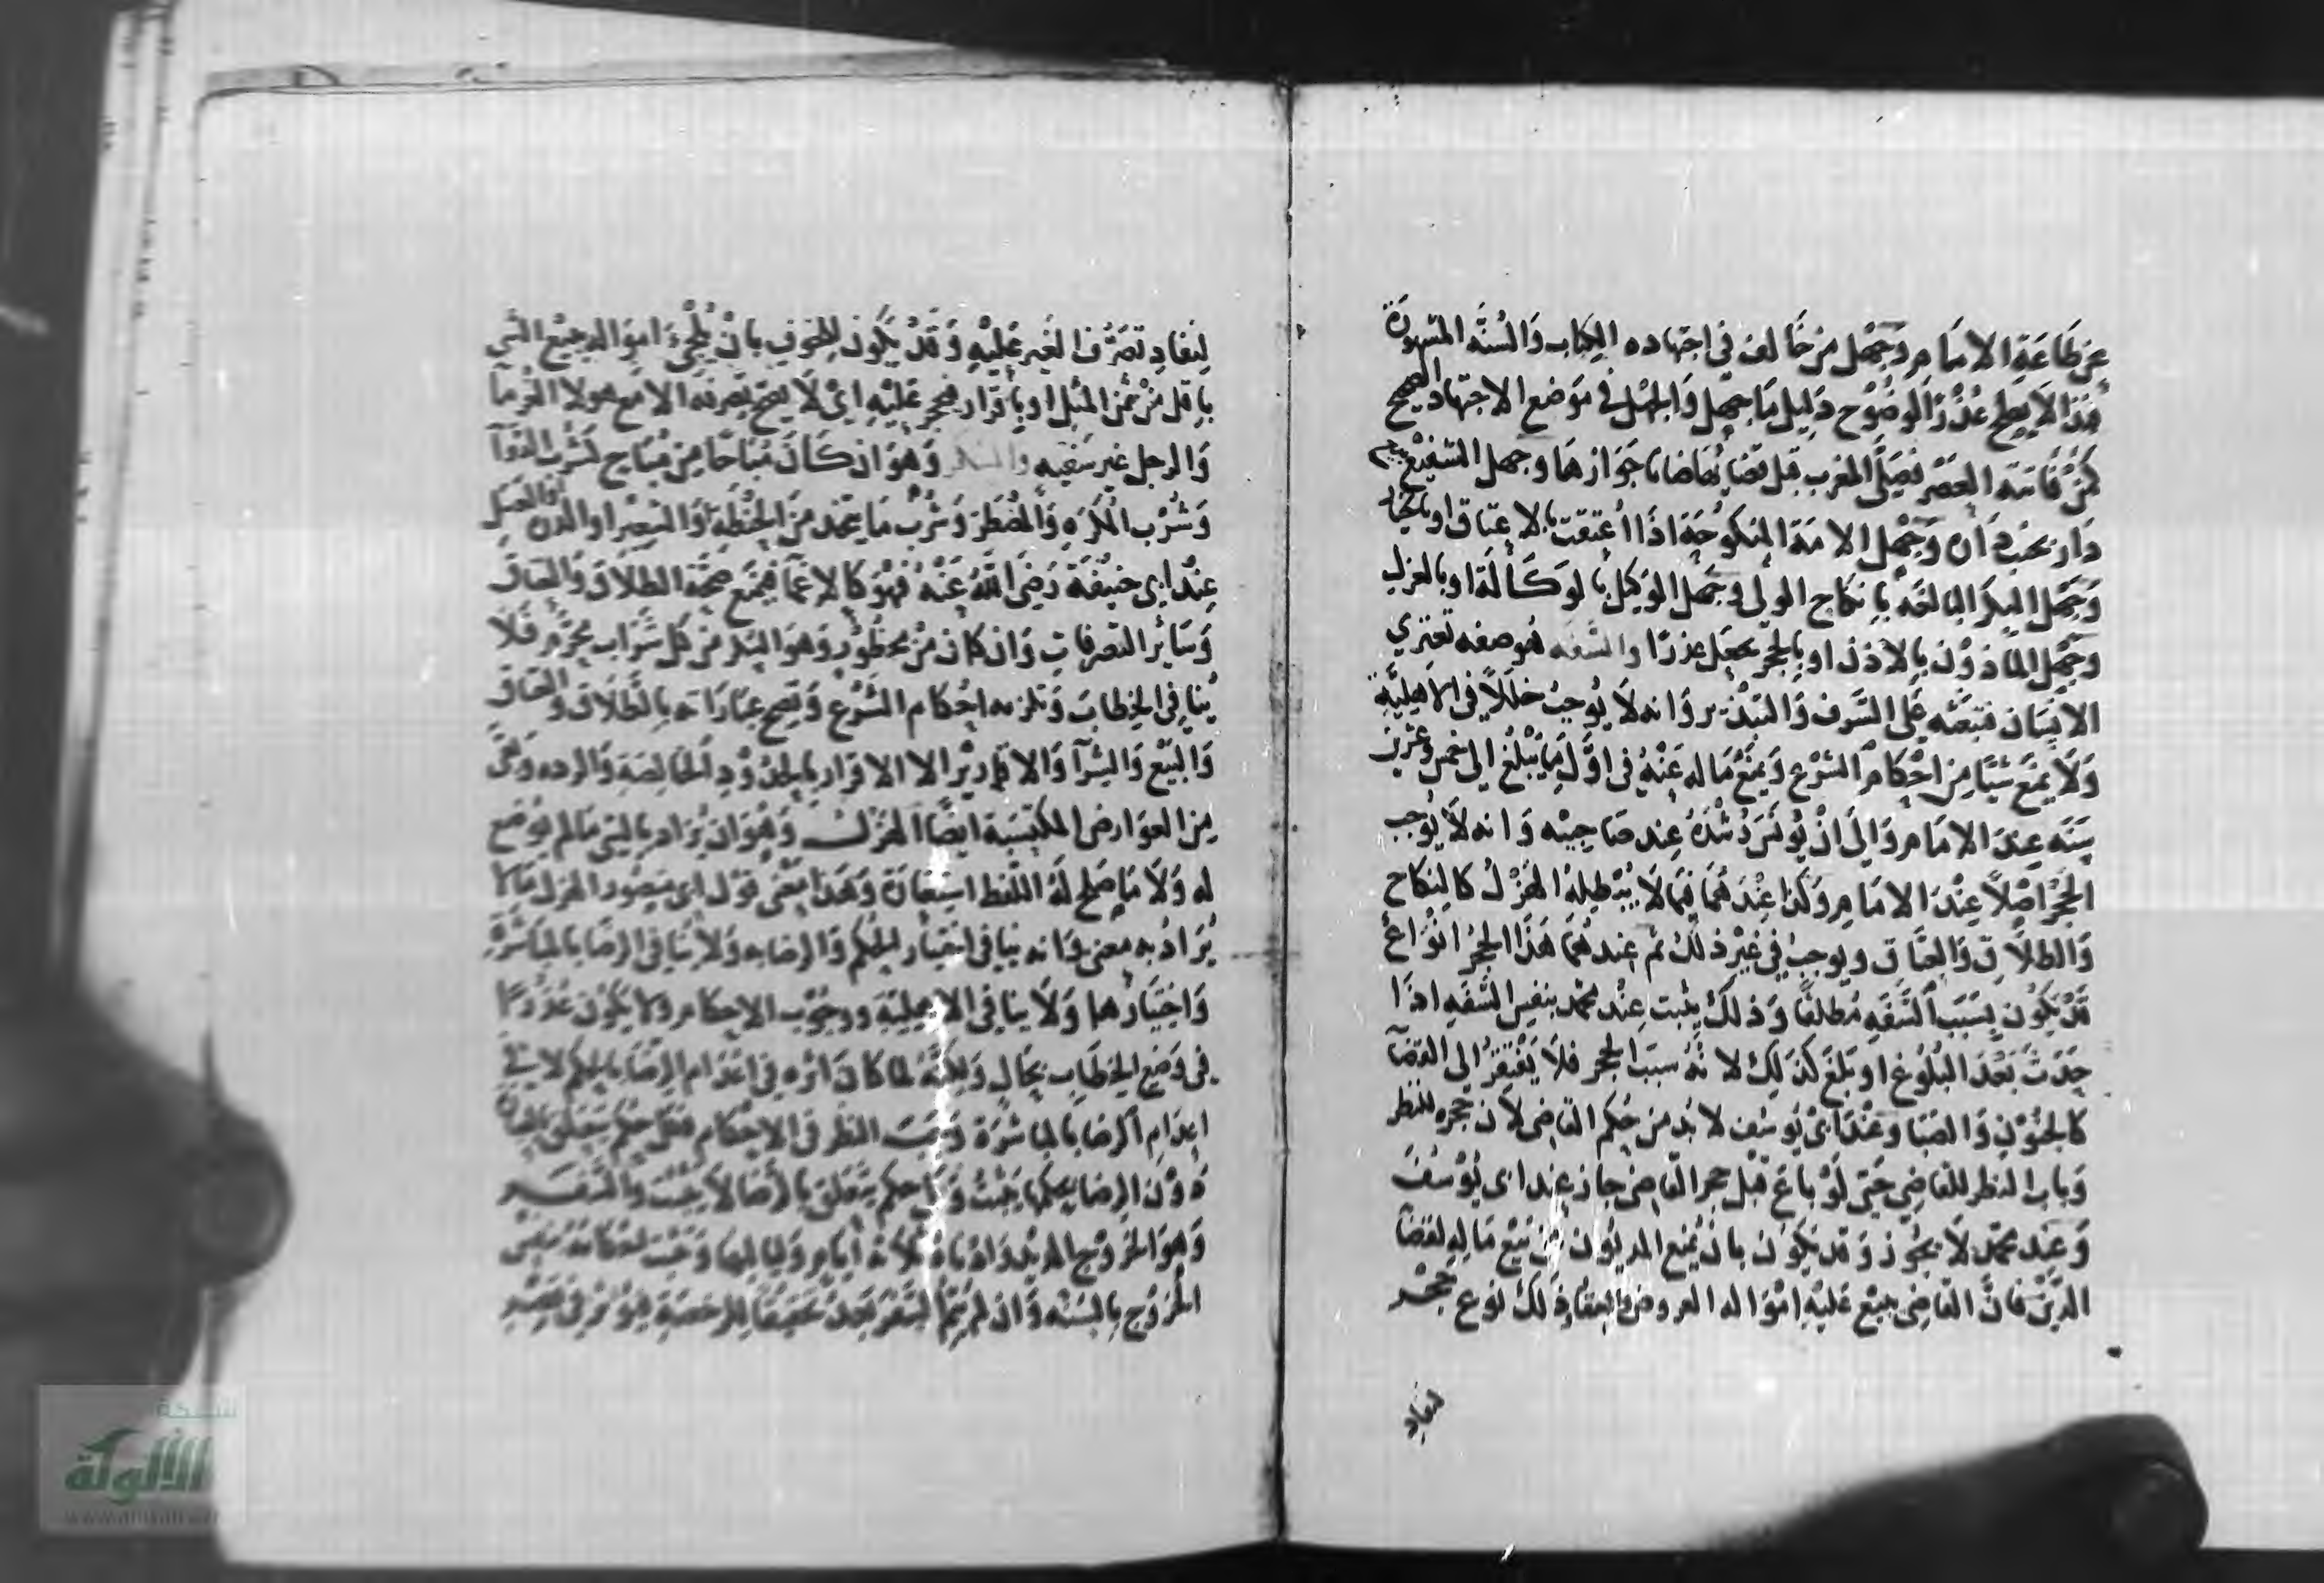 عن طاعة الامام وجهل من خالف في اجتهاده الكتاب والسنه المشهورة
فهذا لا يصلح عذرا لوضوح دليل ما جهل والجهل في موضع الاجتهاد الصحيح
كمن فاتته العصر فصلى المغرب قبل قضايها ضانا جوازها وجهل الشفيع ببيع
دار بجنب داره وجهل الامة المنكوحة اذا اعتقت بالاعتاق او بالخيار
وجهل البكر البالغه بانكاح الولي وجهل الوكيل بالوكالة او بالعزل
وجهل الماذون بالاذن او بالحجر يجعل عذرا والسفه فهو صفه تعتري
الانسان فتبعثه على السرف والتبذير وانه لا يوجب خللا في الاهلية
ولا يمنع شيئا من احكام الشرع ويمنع ماله عنه في اول ما يبلغ الى خمس وعشرين
سنه عند الامام والى ان يونس رشده عند صاحبيه وانه لا يوجب
الحجر اصلا عند الامام وكذا عندهما فيما لا يبطله الهزل كالنكاح
والطلاق والعتاق ويوجب في غير ذلك ثم عندهما هذا الحجر انواع
قد يكون بسبب السفه مطلقا وذلك يثبت عند محمد بنفس السفه اذا
حدث بعد البلوغ او بلغ كذلك لانه سبب الحجر فلا يفتقر الى القضآ
كالجنون والصبا وعند ابي يوسف لا بد من حكم القاضي لان حجره للنظر
وباب النظر للقاضي حتى لو باع قبل حجر القاضي جاز عند ابي يوسف
وعند محمد لا يجوز وقد يكون بان يمنع المديون من بيع ماله لقضآ
الدين فان القاضي يبيع عليه امواله العروض والعقار وذلك نوع حجر
لنفاد
لنفاد تصرف الغير عليه وقد يكون للخوف بان يلجئ امواله ببيع الشي
باقل من ثمن المثل او باقرار فحجر عليه اي لا يصح تصرفه الا مع هولا الغرمآ
والرجل غير سفيه والسكر وهو ان كان مباحا من مباح كشرب الدوآ
وشرب المكره والمضطر وشرب ما يتخذ من الحنطة او الشعير او الذرة او العسل
عند ابي حنيفة رضي الله عنه فهو كالاغمآ فيمنع صحة الطلاق والعتاق
وساير التصرفات وان كان من محظور وهو السكر من كل شراب محرم فلا
ينافي الخطاب وتلزمه احكام الشرع وتصح عباراته بالطلاق والعتاق
والبيع والشرآ والاقارير الا الاقرار بالحدود الخالصة والرده ومن
من العوارض المكتسبة ايضا الهزل وهو ان يراد بالشي ما لم يوضع
له ولا ما صلح له اللفظ استعارة وهذا معنى قول ابي منصور الهزل ما لا
يراد به معنى وانه ينافي اختيار الحكم والرضا به ولا ينافي الرضا بالمباشرة
واختيارها ولا ينافي الاهلية ووجوب الاحكام ولا يكون عذرا
في وضع الخطاب بحال ولكنه لما كان اثره في اعدام الرضا بالحكم لا في
اعدام الرضا بالمباشرة وجب النظر في الاحكام فكل حكم يتعلق بالعبارة
دون الرضا بحكمها يثبت وكل حكم يتعلق بالرضا لا يثبت والسفر
وهو الخروج المديد وادناه ثلاثة ايام ولياليها وتثبت احكامه بنفس
الخروج بالسنه وان لم يتم السفر بعد تحقيقا للرخصة فيؤثر في قصر